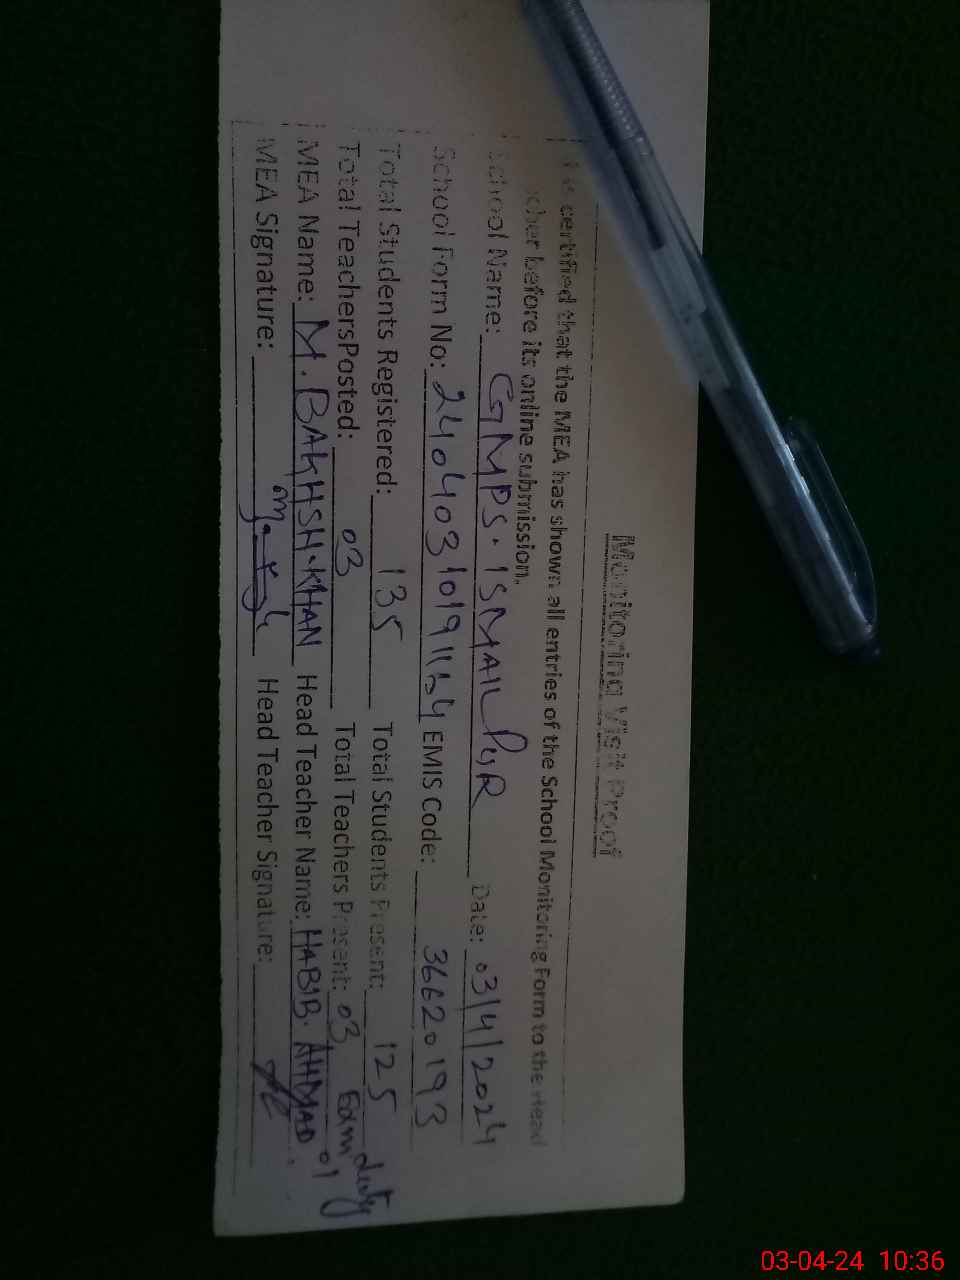 Monitoring Visit Proof
certified that the MEA has shown all entries of the School Monitoring Form to the Head
before its online submission.
School Name: GMPS. ISMAIL PUR Date: 03/4/2024
School Form No: EMIS Code: 36620193
Total Students Registered: 135 Total Students Present: 125
Total TeachersPosted: 03 Total Teachers Present: 03 Exam duty 01
MEA Name: M. BAKHSH.KHAN Head Teacher Name: HABIB. AHMAD.
MEA Signature: Head Teacher Signature:
03-04-24 10:36